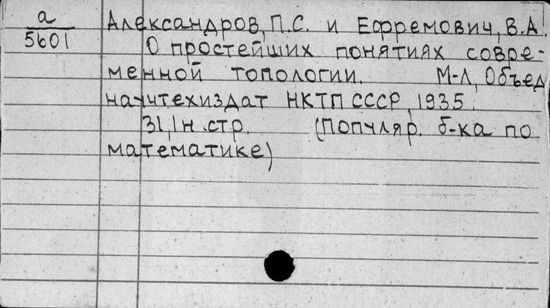 а
5601
Александров, П.С. и Ефремович, В.А.
О простейших понятиях совре-
менной топологии. М-Л, Объед.
научтехиздат НКТП СССР, 1935.
31, 1 н. стр. (Популяр. б-ка по
математике)